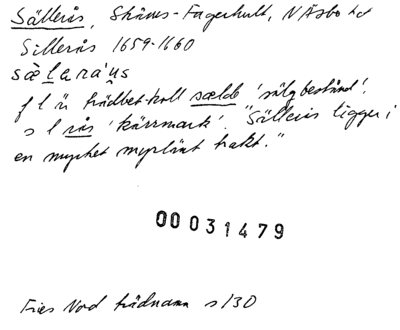 Sällerås, Skånes-Fagerhult, N Åsbo hd
Sillerås 1659-1660
sælaráus
f l är trädbet-koll sælde 'sälgbestånd'.
s l rås 'kärrmark'. "Sällerås ligger i
en mycket myrlänt trakt."
00031479
Fries Nord trädnamn s 130